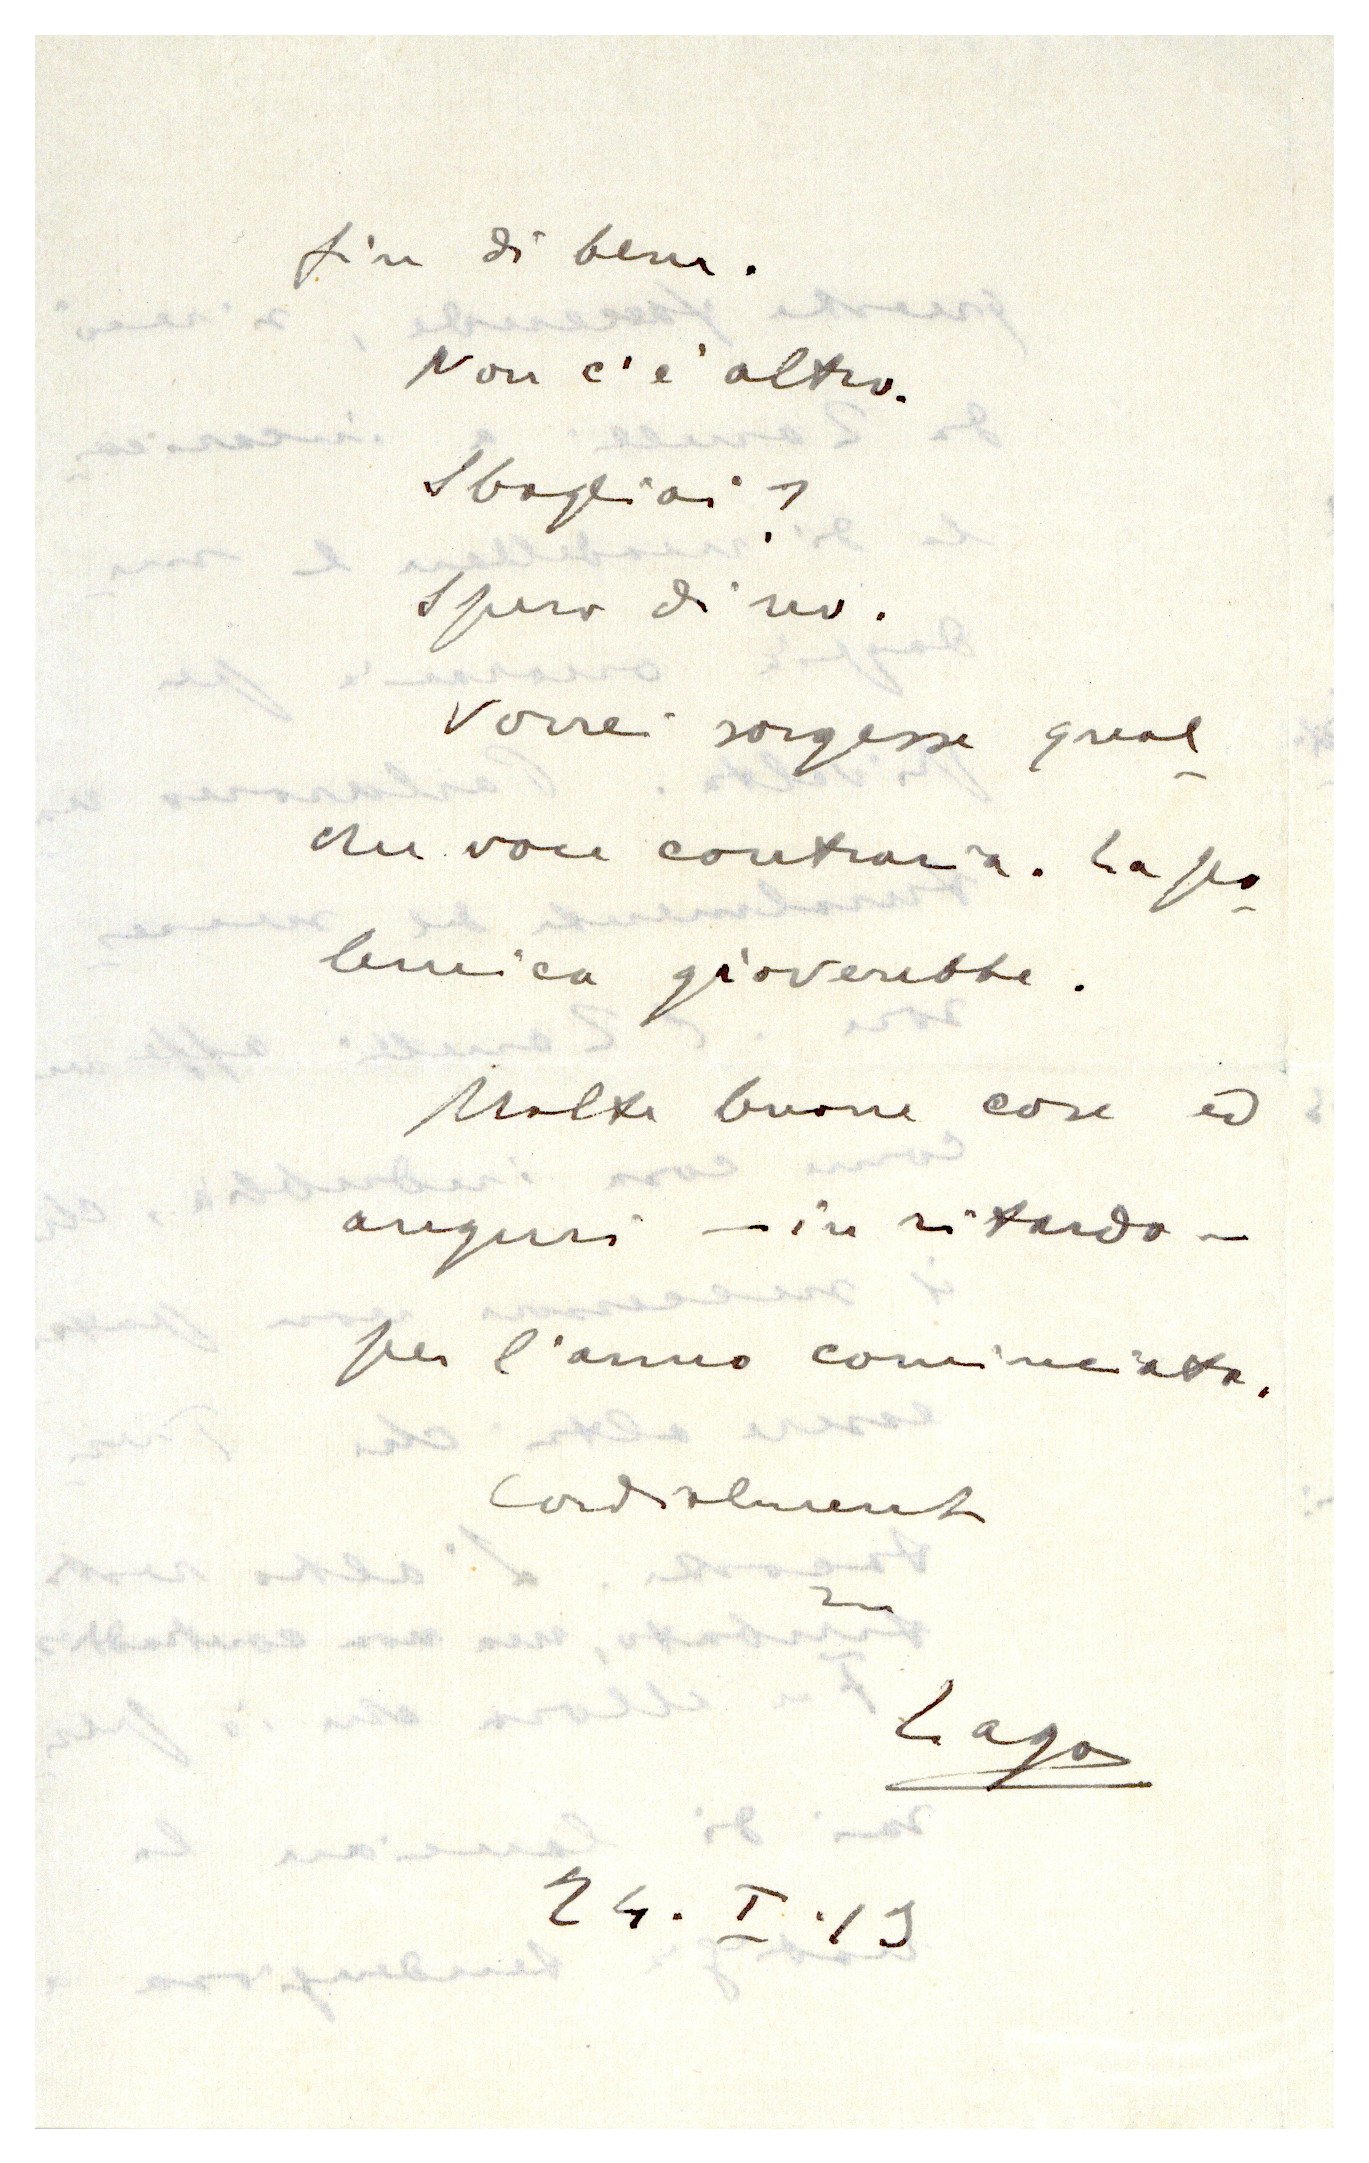 fin di bene.
Non c'è altro.
Sbagliai?
Spero di no.
Vorrei sorgesse qual-
che voce contraria. La po-
lemica gioverebbe.
Molte buone cose ed
auguri – in ritardo –
per l'anno cominciato.
Cordialmente
Lago
24. I. 13